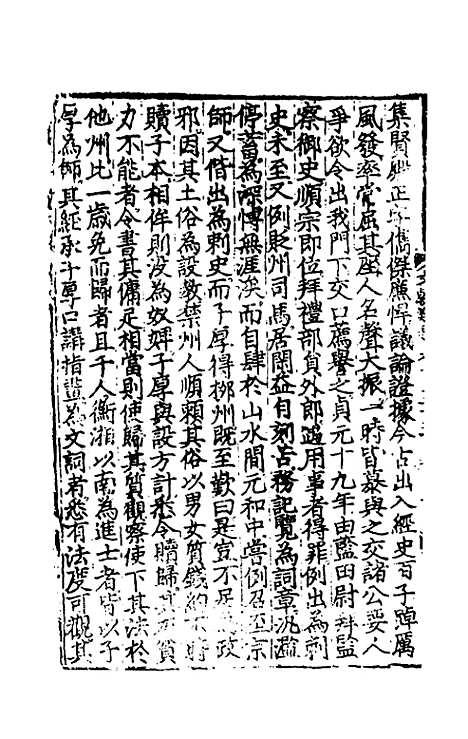 集賢殿正字儁傑廉悍議論證據今古出入經史百子踔厲
風發率常屈其座人名聲大振一時皆慕與之交諸公要人
爭欲令出我門下交口薦譽之貞元十九年由藍田尉拜監
察御史順宗即位拜禮部員外郎遇用事者得罪例出為刺
史未至又例貶州司馬居閑益自刻苦務記覽為詞章汎濫
停蓄為深博無涯涘而自肆於山水間元和中嘗例召至京
師又偕出為刺史而子厚得柳州既至歎曰是豈不足為政
邪因其土俗為設教禁州人順賴其俗以男女質錢約不時
贖子本相侔則没為奴婢子厚與設方計悉令贖歸其貧
力不能者令書其傭足相當則使歸其質觀察使下其法於
他州比一歲免而歸者且千人衡湘以南為進士者皆以子
厚為師其經承子厚口講指畫為文詞者悉有法度可觀其